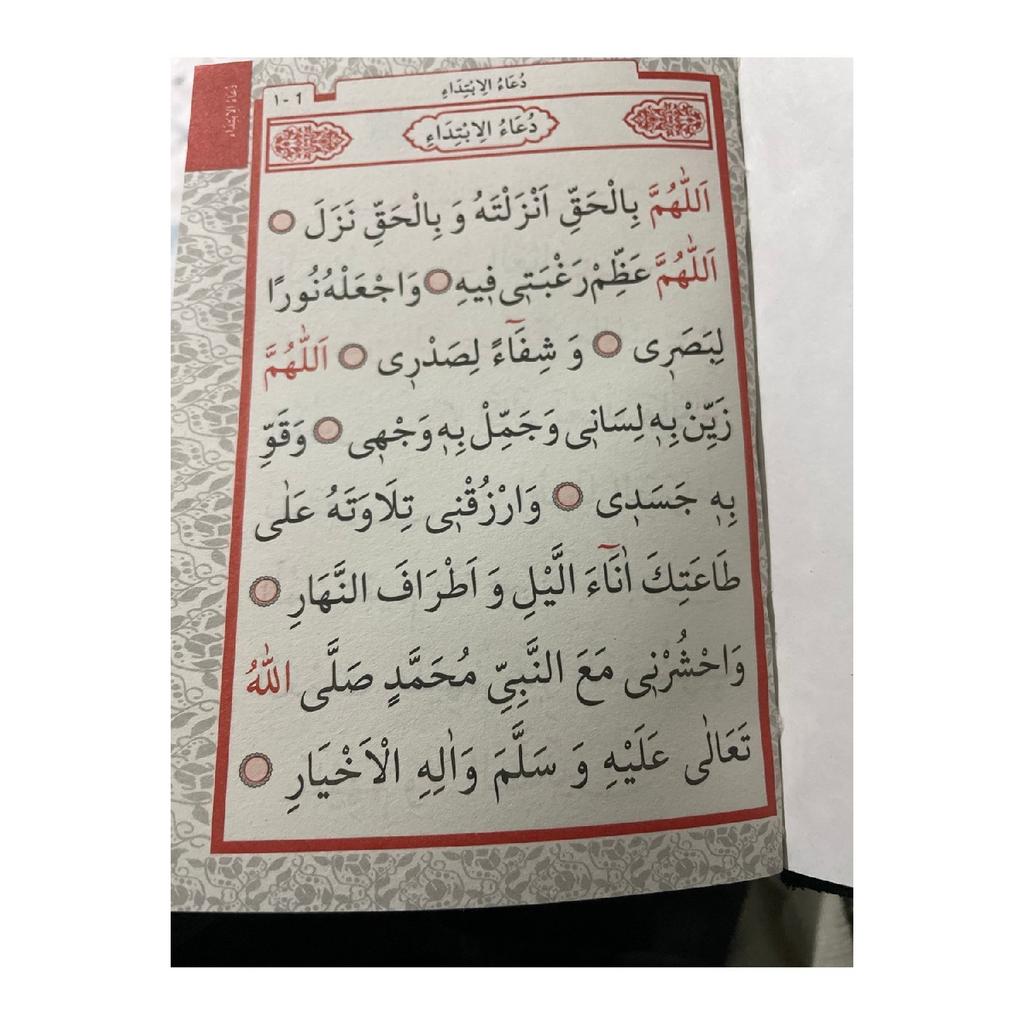 دُعَاءُ الِابْتِدَاءِ
دُعَاءُ الِابْتِدَاءِ
١-1
دُعَاءُ الِابْتِدَاءِ
اَللّٰهُمَّ بِالْحَقِّ اَنْزَلْتَهُ وَ بِالْحَقِّ نَزَلَ
اَللّٰهُمَّ عَظِّمْ رَغْبَتٖى فٖيهِ وَاجْعَلْهُ نُورًا
لِبَصَرٖى وَ شِفَٓاءً لِصَدْرٖى اَللّٰهُمَّ
زَيِّنْ بِهٖ لِسَانٖى وَجَمِّلْ بِهٖ وَجْهٖى وَقَوِّ
بِهٖ جَسَدٖى وَارْزُقْنٖى تِلَاوَتَهُ عَلٰى
طَاعَتِكَ اٰنَٓاءَ الَّيْلِ وَ اَطْرَافَ النَّهَارِ
وَاحْشُرْنٖى مَعَ النَّبِىِّ مُحَمَّدٍ صَلَّى اللّٰهُ
تَعَالٰى عَلَيْهِ وَ سَلَّمَ وَاٰلِهِ الْاَخْيَارِ